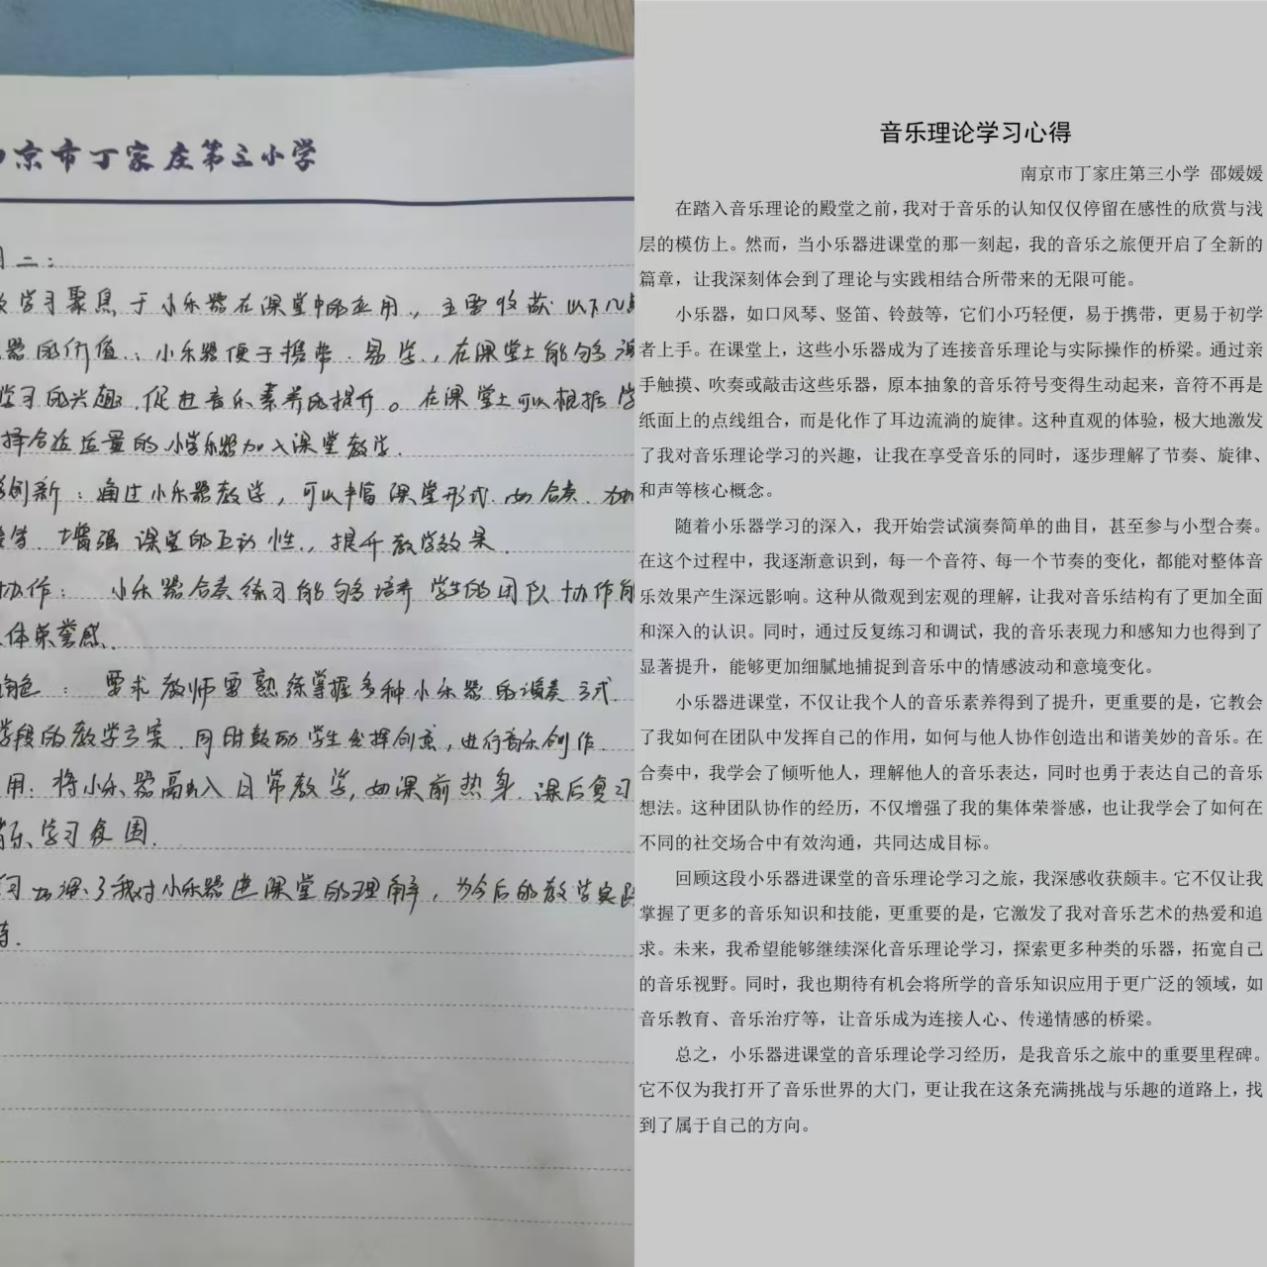 京市丁家庄第三小学
二：
学习聚焦于小乐器在课堂中的应用，主要收获：以下几
器的价值：小乐器便于携带、易学，在课堂上能够
学习的兴趣，促进音乐素养的提升。在课堂上可以根据学
择合适适量的小学乐器加入课堂教学.
创新：通过小乐器教学，可以丰富课堂形式.如合奏.
增强课堂的互动性，提升教学效果.
协作：小乐器合奏练习能够培养学生的团队协作
体荣誉感.
角色：要求教师要熟练掌握多种小乐器的演奏方式.
学段的教学方案.同时鼓励学生发挥创意，进行音乐创作.
用：将小乐器融入日常教学，如课前热身.课后复习
音乐学习氛围.
习加深了我对小乐器进课堂的理解，为今后的教学实践
音乐理论学习心得
南京市丁家庄第三小学 邵媛媛
在踏入音乐理论的殿堂之前，我对于音乐的认知仅仅停留在感性的欣赏与浅
层的模仿上。然而，当小乐器进课堂的那一刻起，我的音乐之旅便开启了全新的
篇章，让我深刻体会到了理论与实践相结合所带来的无限可能。
小乐器，如口风琴、竖笛、铃鼓等，它们小巧轻便，易于携带，更易于初学
者上手。在课堂上，这些小乐器成为了连接音乐理论与实际操作的桥梁。通过亲
手触摸、吹奏或敲击这些乐器，原本抽象的音乐符号变得生动起来，音符不再是
纸面上的点线组合，而是化作了耳边流淌的旋律。这种直观的体验，极大地激发
了我对音乐理论学习的兴趣，让我在享受音乐的同时，逐步理解了节奏、旋律、
和声等核心概念。
随着小乐器学习的深入，我开始尝试演奏简单的曲目，甚至参与小型合奏。
在这个过程中，我逐渐意识到，每一个音符、每一个节奏的变化，都能对整体音
乐效果产生深远影响。这种从微观到宏观的理解，让我对音乐结构有了更加全面
和深入的认识。同时，通过反复练习和调试，我的音乐表现力和感知力也得到了
显著提升，能够更加细腻地捕捉到音乐中的情感波动和意境变化。
小乐器进课堂，不仅让我个人的音乐素养得到了提升，更重要的是，它教会
了我如何在团队中发挥自己的作用，如何与他人协作创造出和谐美妙的音乐。在
合奏中，我学会了倾听他人，理解他人的音乐表达，同时也勇于表达自己的音乐
想法。这种团队协作的经历，不仅增强了我的集体荣誉感，也让我学会了如何在
不同的社交场合中有效沟通，共同达成目标。
回顾这段小乐器进课堂的音乐理论学习之旅，我深感收获颇丰。它不仅让我
掌握了更多的音乐知识和技能，更重要的是，它激发了我对音乐艺术的热爱和追
求。未来，我希望能够继续深化音乐理论学习，探索更多种类的乐器，拓宽自己
的音乐视野。同时，我也期待有机会将所学的音乐知识应用于更广泛的领域，如
音乐教育、音乐治疗等，让音乐成为连接人心、传递情感的桥梁。
总之，小乐器进课堂的音乐理论学习经历，是我音乐之旅中的重要里程碑。
它不仅为我打开了音乐世界的大门，更让我在这条充满挑战与乐趣的道路上，找
到了属于自己的方向。